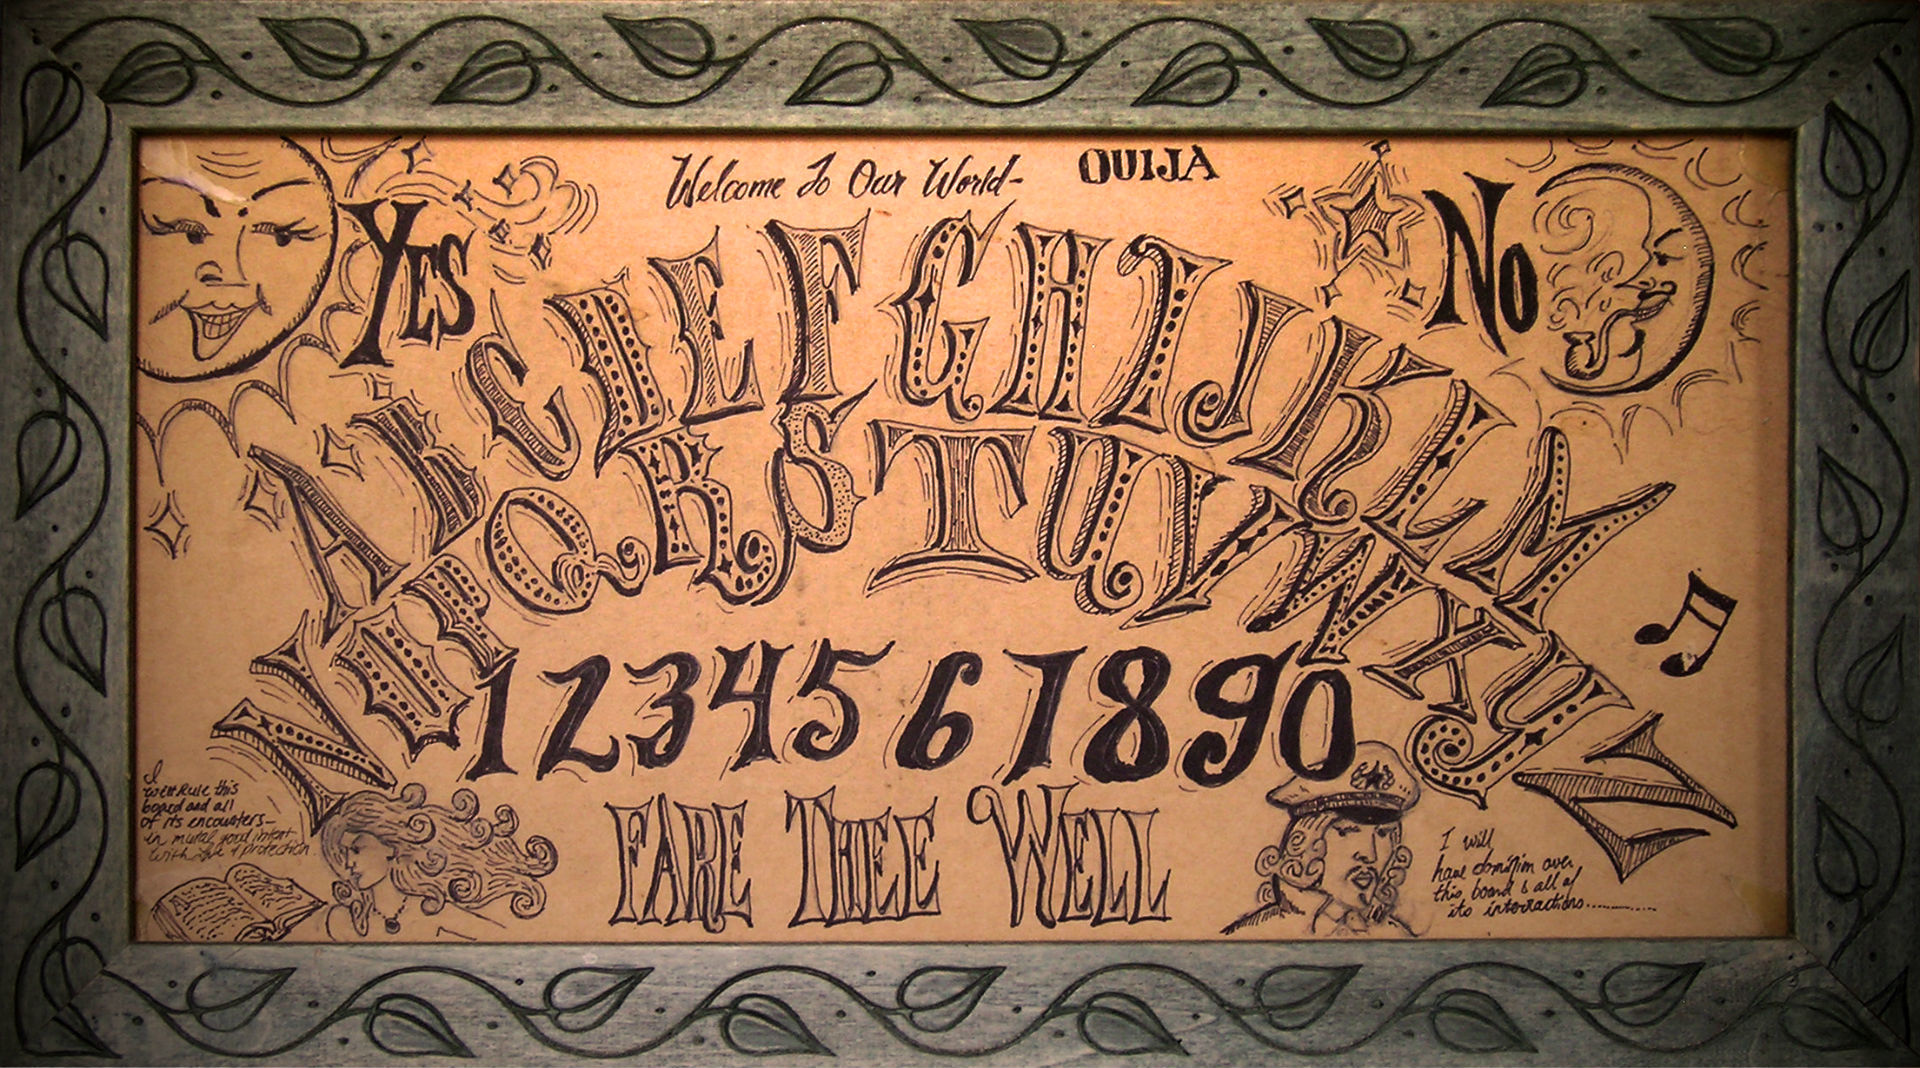 Welcome To Our World- OUIJA
YES
NO
A B C D E F G H I J K L M
N O P Q R S T U V W X Y Z
1 2 3 4 5 6 7 8 9 0
FARE THEE WELL
I
will Rule this
board and all
of its encounters—
in mutal good intent
with love & protection.
I will
have dominion over
this board & all of
its interractions............